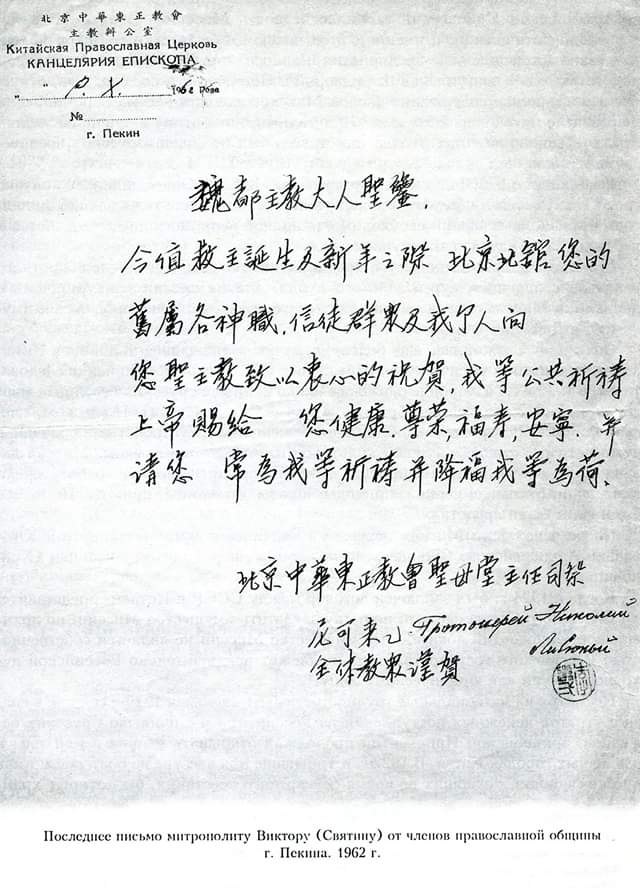 北京中華東正教會
主教辦公室
Китайская Православная Церковь
КАНЦЕЛЯРИЯ ЕПИСКОПА
„ “ Р. Х. 1962 года
№
г. Пекин
魏都主教大人聖鑒,
今值救主誕生及新年之際 北京北館您的
舊屬各神職,信徒群衆及我個人向
您聖主教致以衷心的祝賀,我等公共祈禱
上帝賜給 您健康,尊荣,福寿,安寧. 并
請您 常為我等祈禱并降福我等為荷.
北京中華東正教會聖母堂主任司祭
尼可来乙. Протоиерей Николий
全体教衆謹賀
Последнее письмо митрополиту Виктору (Святину) от членов православной общины
г. Пекина. 1962 г.